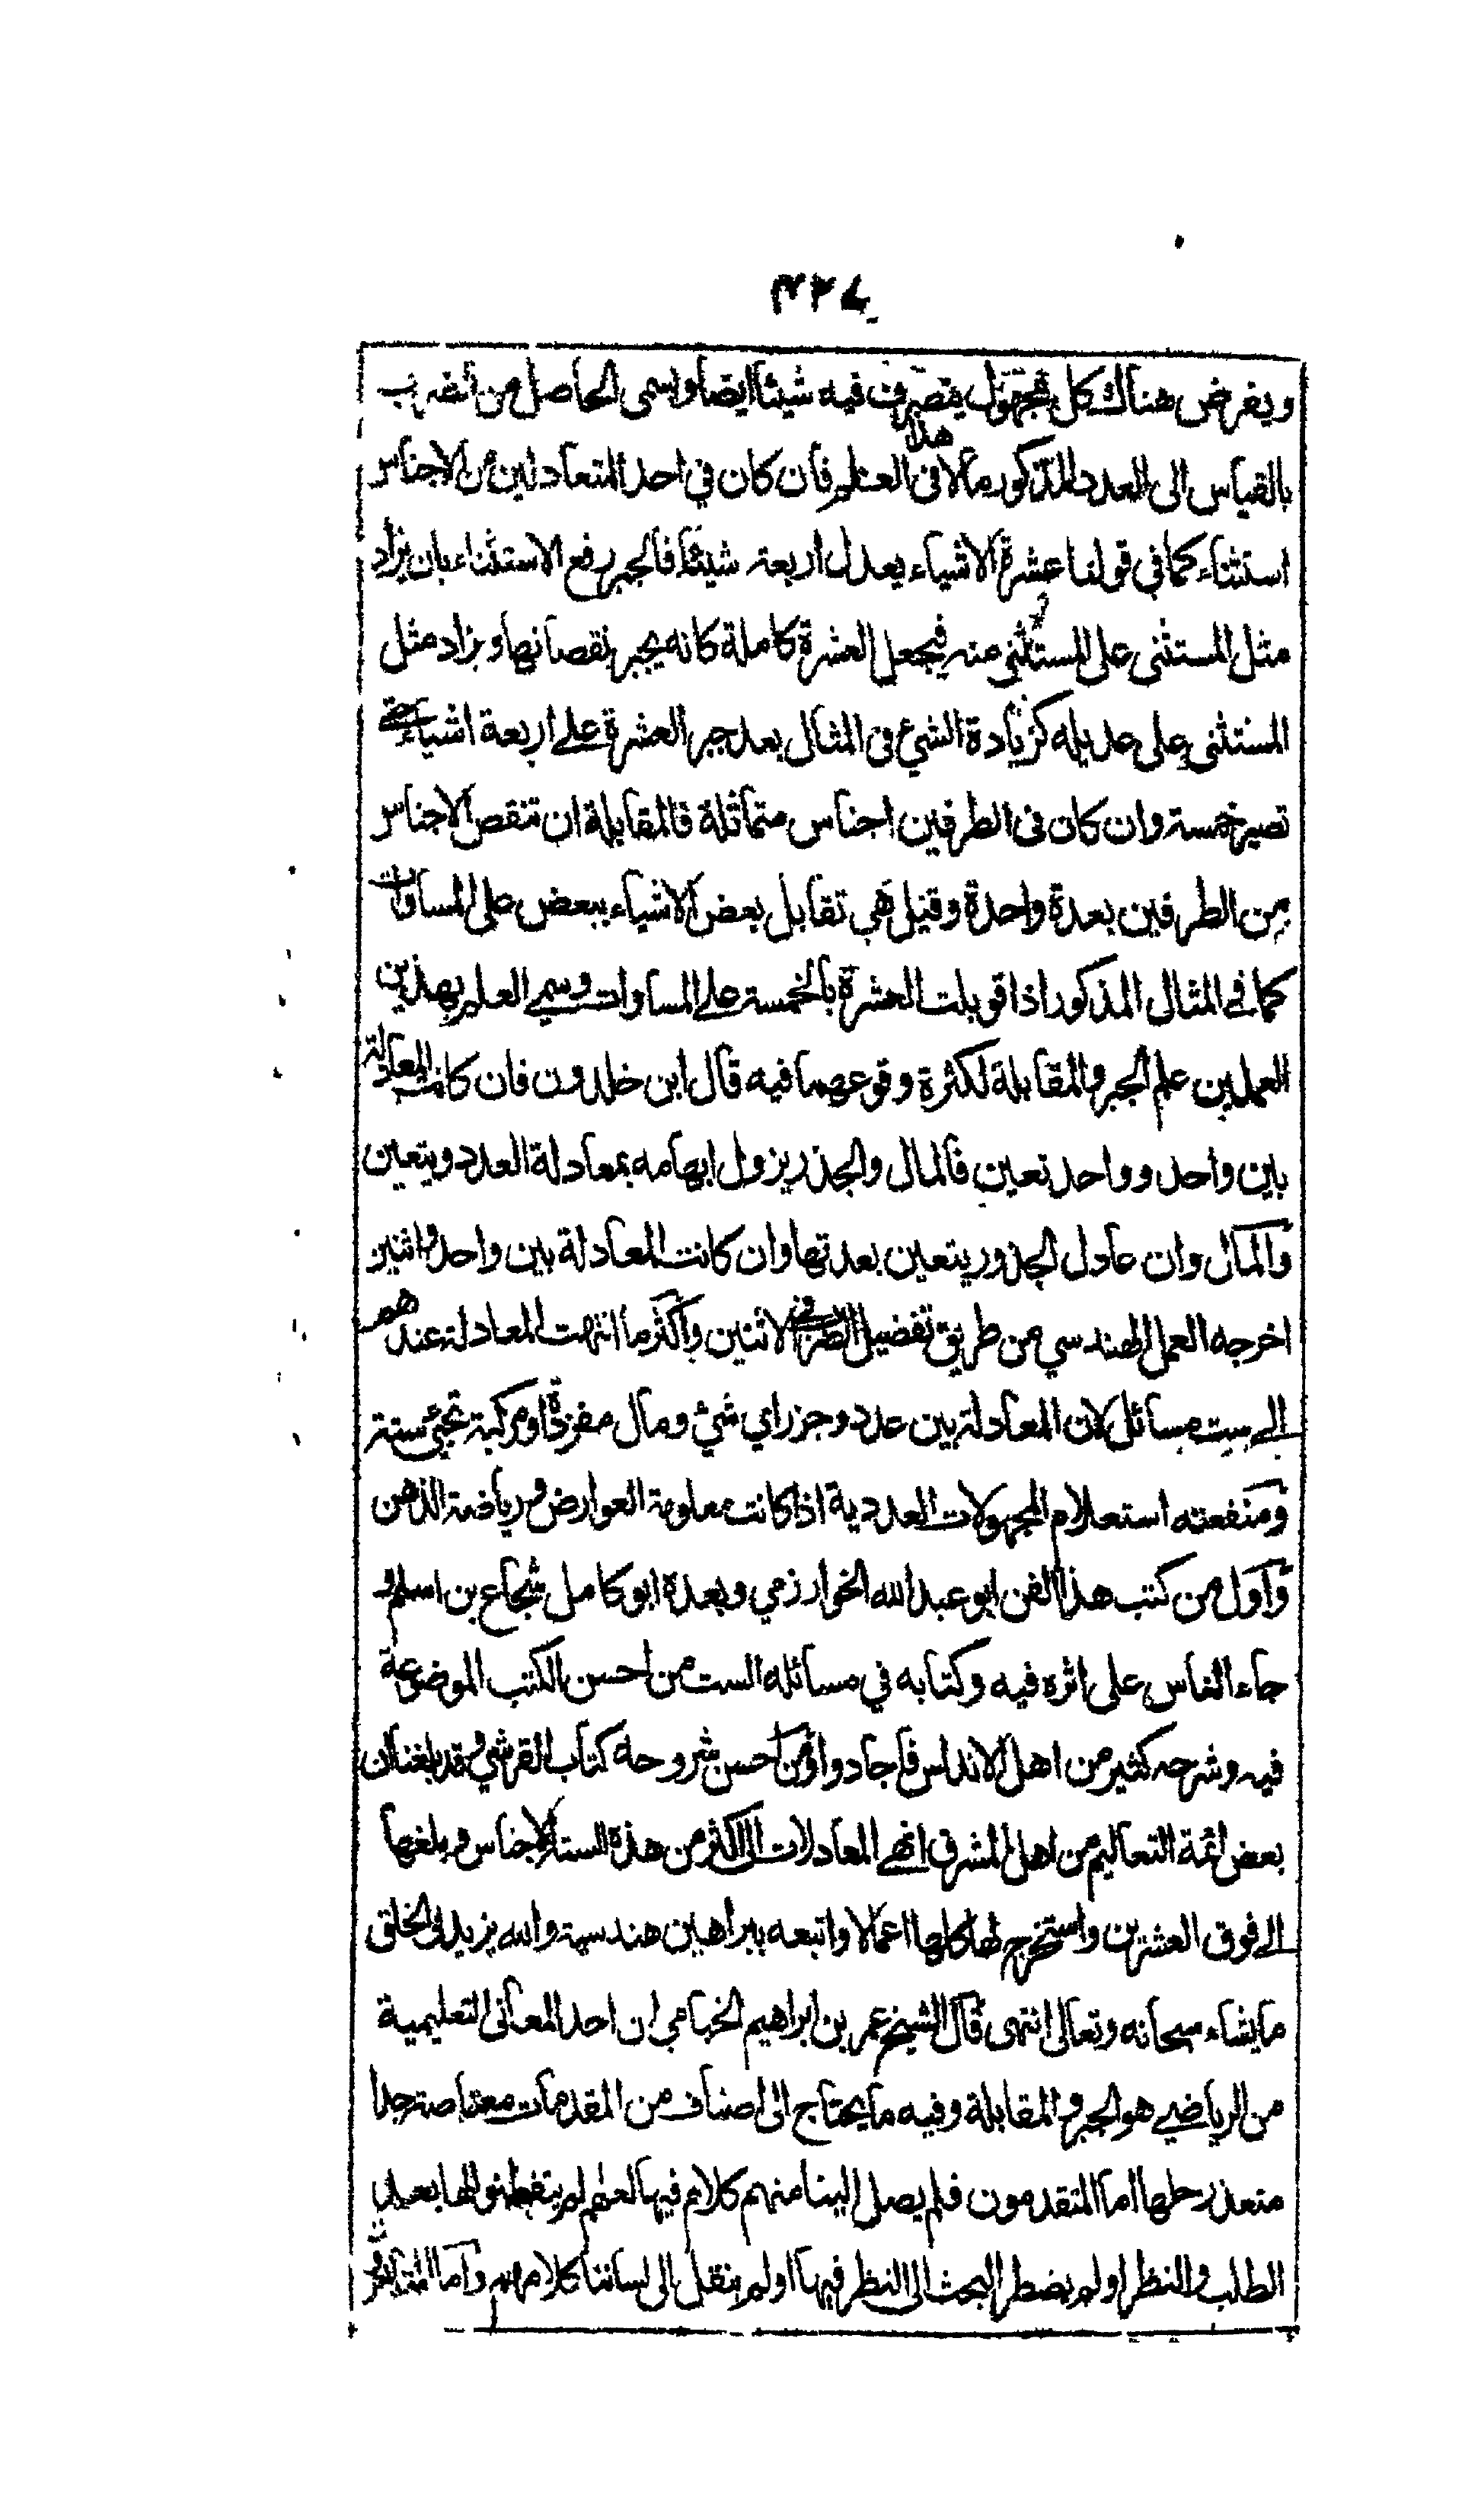 ٤٢٧
ويفرض هناك كل مجهول يتصرف فيه شيئا ايضا ويسمى الحاصل من الضرب
بالقياس الى العدد المذكور مالا فى هذا العلم فان كان في احد المتعادلين من الاجناس
استثناء كما في قولنا عشرة الا شياء يعدل اربعة شيئا فالجبر رفع الاستثناء بان يزاد
مثل المستثنى على المستثنى منه فيجعل العشرة كاملة كانه يجبر نقصانها ويزاد مثل
المستثنى على عديله كزيادة الشئ فى المثال بعد جبر العشرة على اربعة اشياء حتى
تصير خمسة وان كان فى الطرفين اجناس متماثلة فالمقابلة ان تنقص الاجناس
من الطرفين بعدة واحدة وقيل هي تقابل بعض الاشياء ببعض على المساوات
كما فى المثال المذكور اذا قوبلت العشرة بالخمسة على المساوات وسمى العلم بهذين
العملين علم الجبر والمقابلة لكثرة وقوعهما فيه قال ابن خلدون فان كانت المعادلة
بين واحد وواحد تعين فالمال والجذر يزول ابهامه بمعادلة العدد ويتعين
والمال وان عادل الجذور يتعين بعدتها وان كانت المعادلة بين واحد واثنين
اخرجه العمل الهندسي من طريق تفضيل الضرب فى الاثنين واكثر ما انتهت المعادلة عندهم
الى ست مسائل لان المعادلة بين عدد وجزراي شئ ومال مفردة او مركبة تجئ ستة
ومنفعته استعلام المجهولات العددية اذا كانت معلومة العوارض ورياضة الذهن
واول من كتب هذا الفن ابو عبد الله الخوارزمي وبعده ابو كامل شجاع بن اسلم و
جاء الناس على اثره فيه وكتابه في مسائله الست من احسن الكتب الموضوعة
فيه وشرحه كثير من اهل الاندلس فاجادوا ومن احسن شروحه كتاب القرشي وقد بلغنا ان
بعض ائمة التعاليم من اهل المشرق انهى المعادلات الى اكثر من هذه الستة الاجناس وبلغها
الى فوق العشرين واستخرج لها كلها اعمالا واتبعه ببراهين هندسية والله يزيد فى الخلق
ما يشاء سبحانه وتعالى انتهى قال الشيخ عمر بن ابراهيم الخيامي ان احد المعانى التعليمية
من الرياضي هو الجبر والمقابلة وفيه ما يحتاج الى اصناف من المقدمات معتاصة جدا
متعذر حلها اما المتقدمون فلم يصل الينا منهم كلام فيها لعلهم لم يتفطنوا لها بعد
الطلب والنظر او لم يضطر البحث الى النظر فيها او لم ينقل الى لساننا كلامهم واما المتاخرون